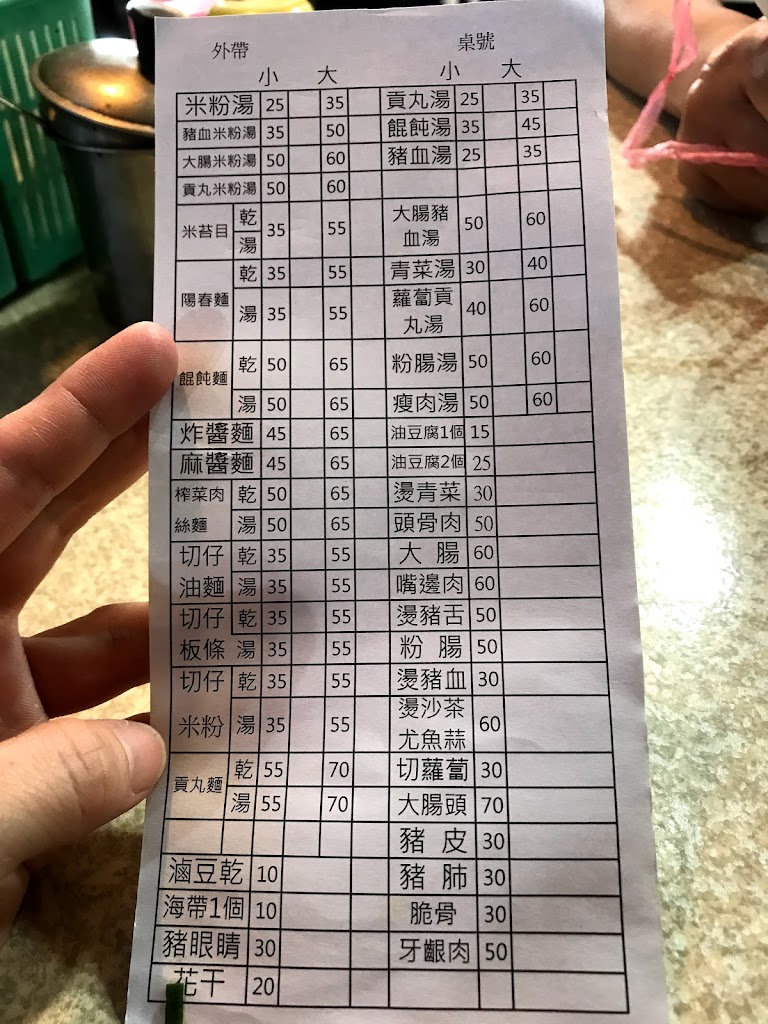 外帶 桌號
小 大 小 大
米粉湯 25 35 貢丸湯 25 35
豬血米粉湯 35 50 餛飩湯 35 45
大腸米粉湯 50 60 豬血湯 25 35
貢丸米粉湯 50 60
米苔目 乾 湯 35 55 大腸豬血湯 50 60
陽春麵 乾 35 55 青菜湯 30 40
湯 35 55 蘿蔔貢丸湯 40 60
餛飩麵 乾 50 65 粉腸湯 50 60
湯 50 65 瘦肉湯 50 60
炸醬麵 45 65 油豆腐1個 15
麻醬麵 45 65 油豆腐2個 25
榨菜肉 乾 50 65 燙青菜 30
絲麵 湯 50 65 頭骨肉 50
切仔 乾 35 55 大腸 60
油麵 湯 35 55 嘴邊肉 60
切仔 乾 35 55 燙豬舌 50
板條 湯 35 55 粉腸 50
切仔 乾 35 55 燙豬血 30
米粉 湯 35 55 燙沙茶尤魚蒜 60
貢丸麵 乾 55 70 切蘿蔔 30
湯 55 70 大腸頭 70
豬皮 30
滷豆乾 10 豬肺 30
海帶1個 10 脆骨 30
豬眼睛 30 牙齦肉 50
花干 20